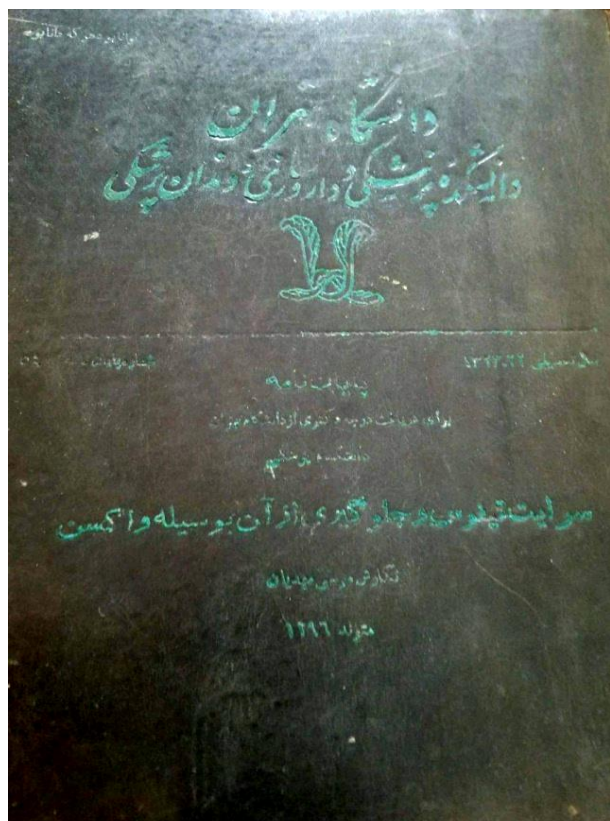 توانا بود هر که دانا بود
دانشگاه تهران
دانشکده پزشکی و داروسازی و دندان پزشکی
سال تحصیلی ۲۲-۱۳۲۳
شماره پایان نامه
پایان نامه
برای دریافت درجه دکتری از دانشگاه تهران
دانشکده پزشکی
سرایت تیفوس و جلوگیری از آن بوسیله واکسن
نگارش موسی مهدیان
متولد ۱۲۹۶